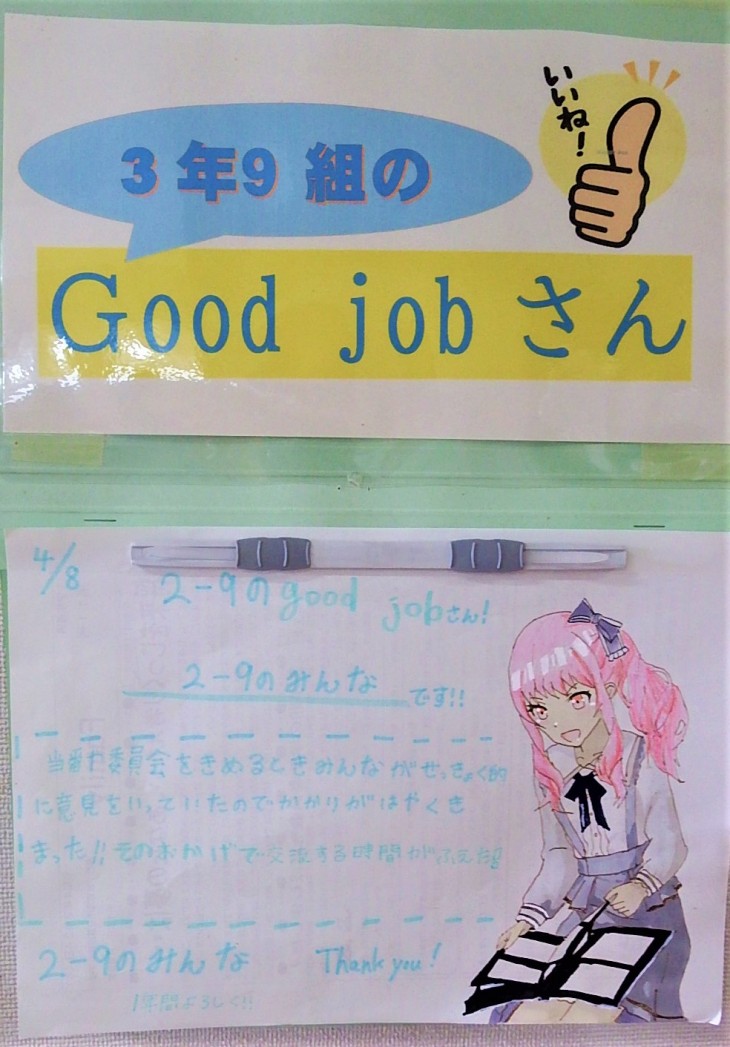 いいね！
3年9組の
Good jobさん
4/8
2-9のgood jobさん!
2-9のみんなです!!
当番や委員会をきめるときみんながせっきょく的
に意見をいっていたのでかかりがはやくき
まった!!そのおかげで交流する時間がふえた
2-9のみんな Thank you!
1年間よろしく!!